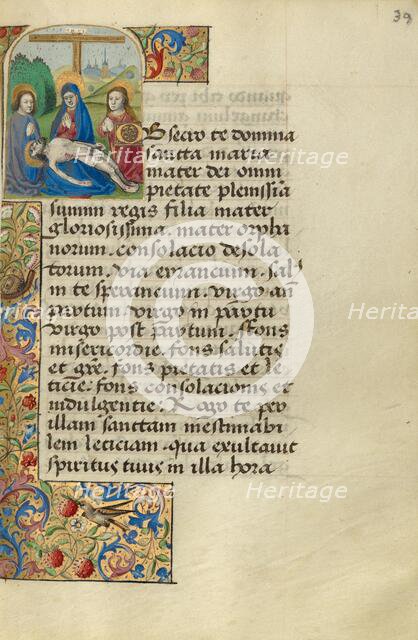 39
Obsecro te domina
sancta maria
mater dei omni
pietate plenissia
summi regis filia mater
gloriosissima. mater orpha
norum. consolacio desola
torum. Via errancium. sal
in te sperancium. Virgo an
partum. Virgo in partu
virgo post partum. ffons
misericordie. fons salutis
et gre. fons pietatis et le
ticie. fons consolacionis et
indulgentie. Rogo te per
illam sanctam inestimabi
lem leticiam. qua exultauit
spiritus tuus in illa hora
Heritage
Heritage
Heritage
Heritage
Heritage
Heritage